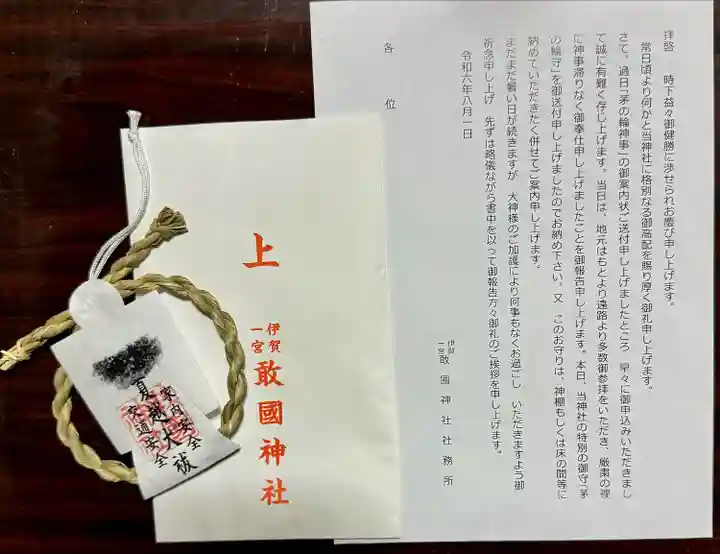 拝啓　時下益々御健勝に渉せられお慶び申し上げます。
常日頃より何かと当神社に格別なる御高配を賜り厚く御礼申し上げます。
さて、過日「茅の輪神事」の御案内状ご送付申し上げましたところ　早々に御申込みいただきまし
て誠に有難く存し上げます。当日は、地元はもとより遠路より多数御参拝をいただき、厳粛の裡
に神事滞りなく御奉仕申し上げましたことを御報告申し上げます。本日、当神社の特別の御守「茅
の輪守」を御送付申し上げましたのでお納め下さい。又　このお守りは、神棚もしくは床の間等に
納めていただきたく併せてご案内申し上げます。
まだまだ暑い日が続きますが　大神様のご加護により何事もなくお過ごし　いただきますよう御
祈念申し上げ　先ずは略儀ながら書中を以って御報告方々御礼のご挨拶を申し上げます。
令和六年八月一日
伊賀
一宮
敢國神社社務所
各位
上
伊賀
一宮
敢國神社
家内安全
夏越大祓
交通安全